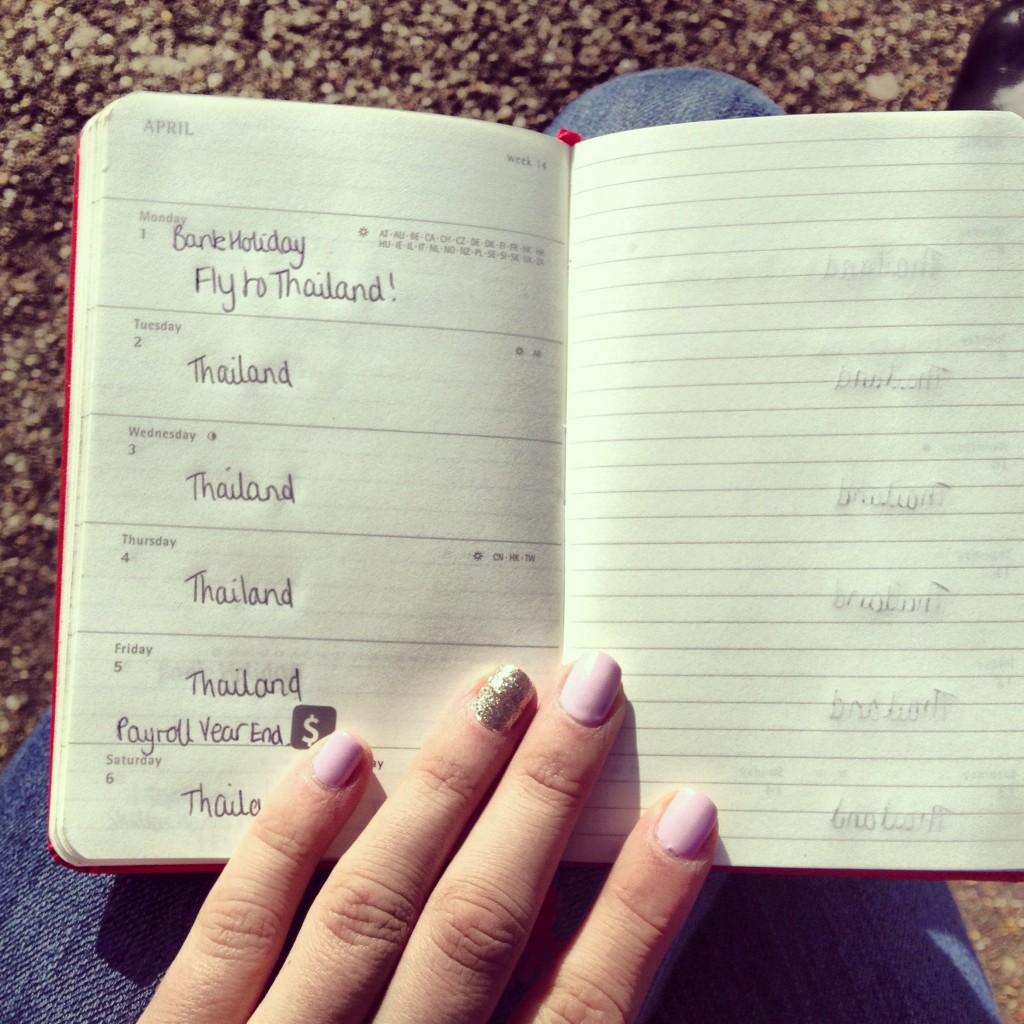 APRIL
week 14
Monday
1
Bank Holiday
AT·AU·BE·CA·CH·CZ·DE·DK·FI·FR·HK·HR
HU·IE·IL·IT·NL·NO·NZ·PL·SE·SI·SK·UK·ZA
Fly to Thailand!
Tuesday
2
AU
Thailand
Wednesday
3
Thailand
Thursday
4
CN·HK·TW
Thailand
Friday
5
Thailand
Payroll Year End $
Saturday
6